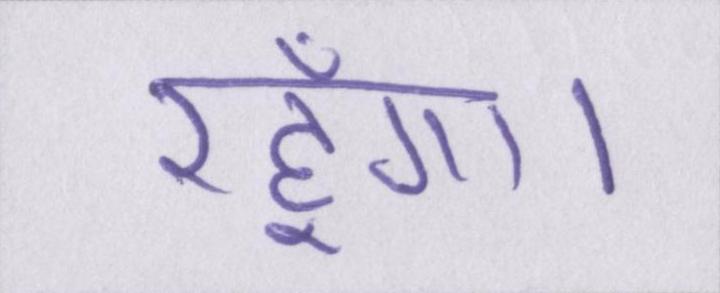 रहूँगा।